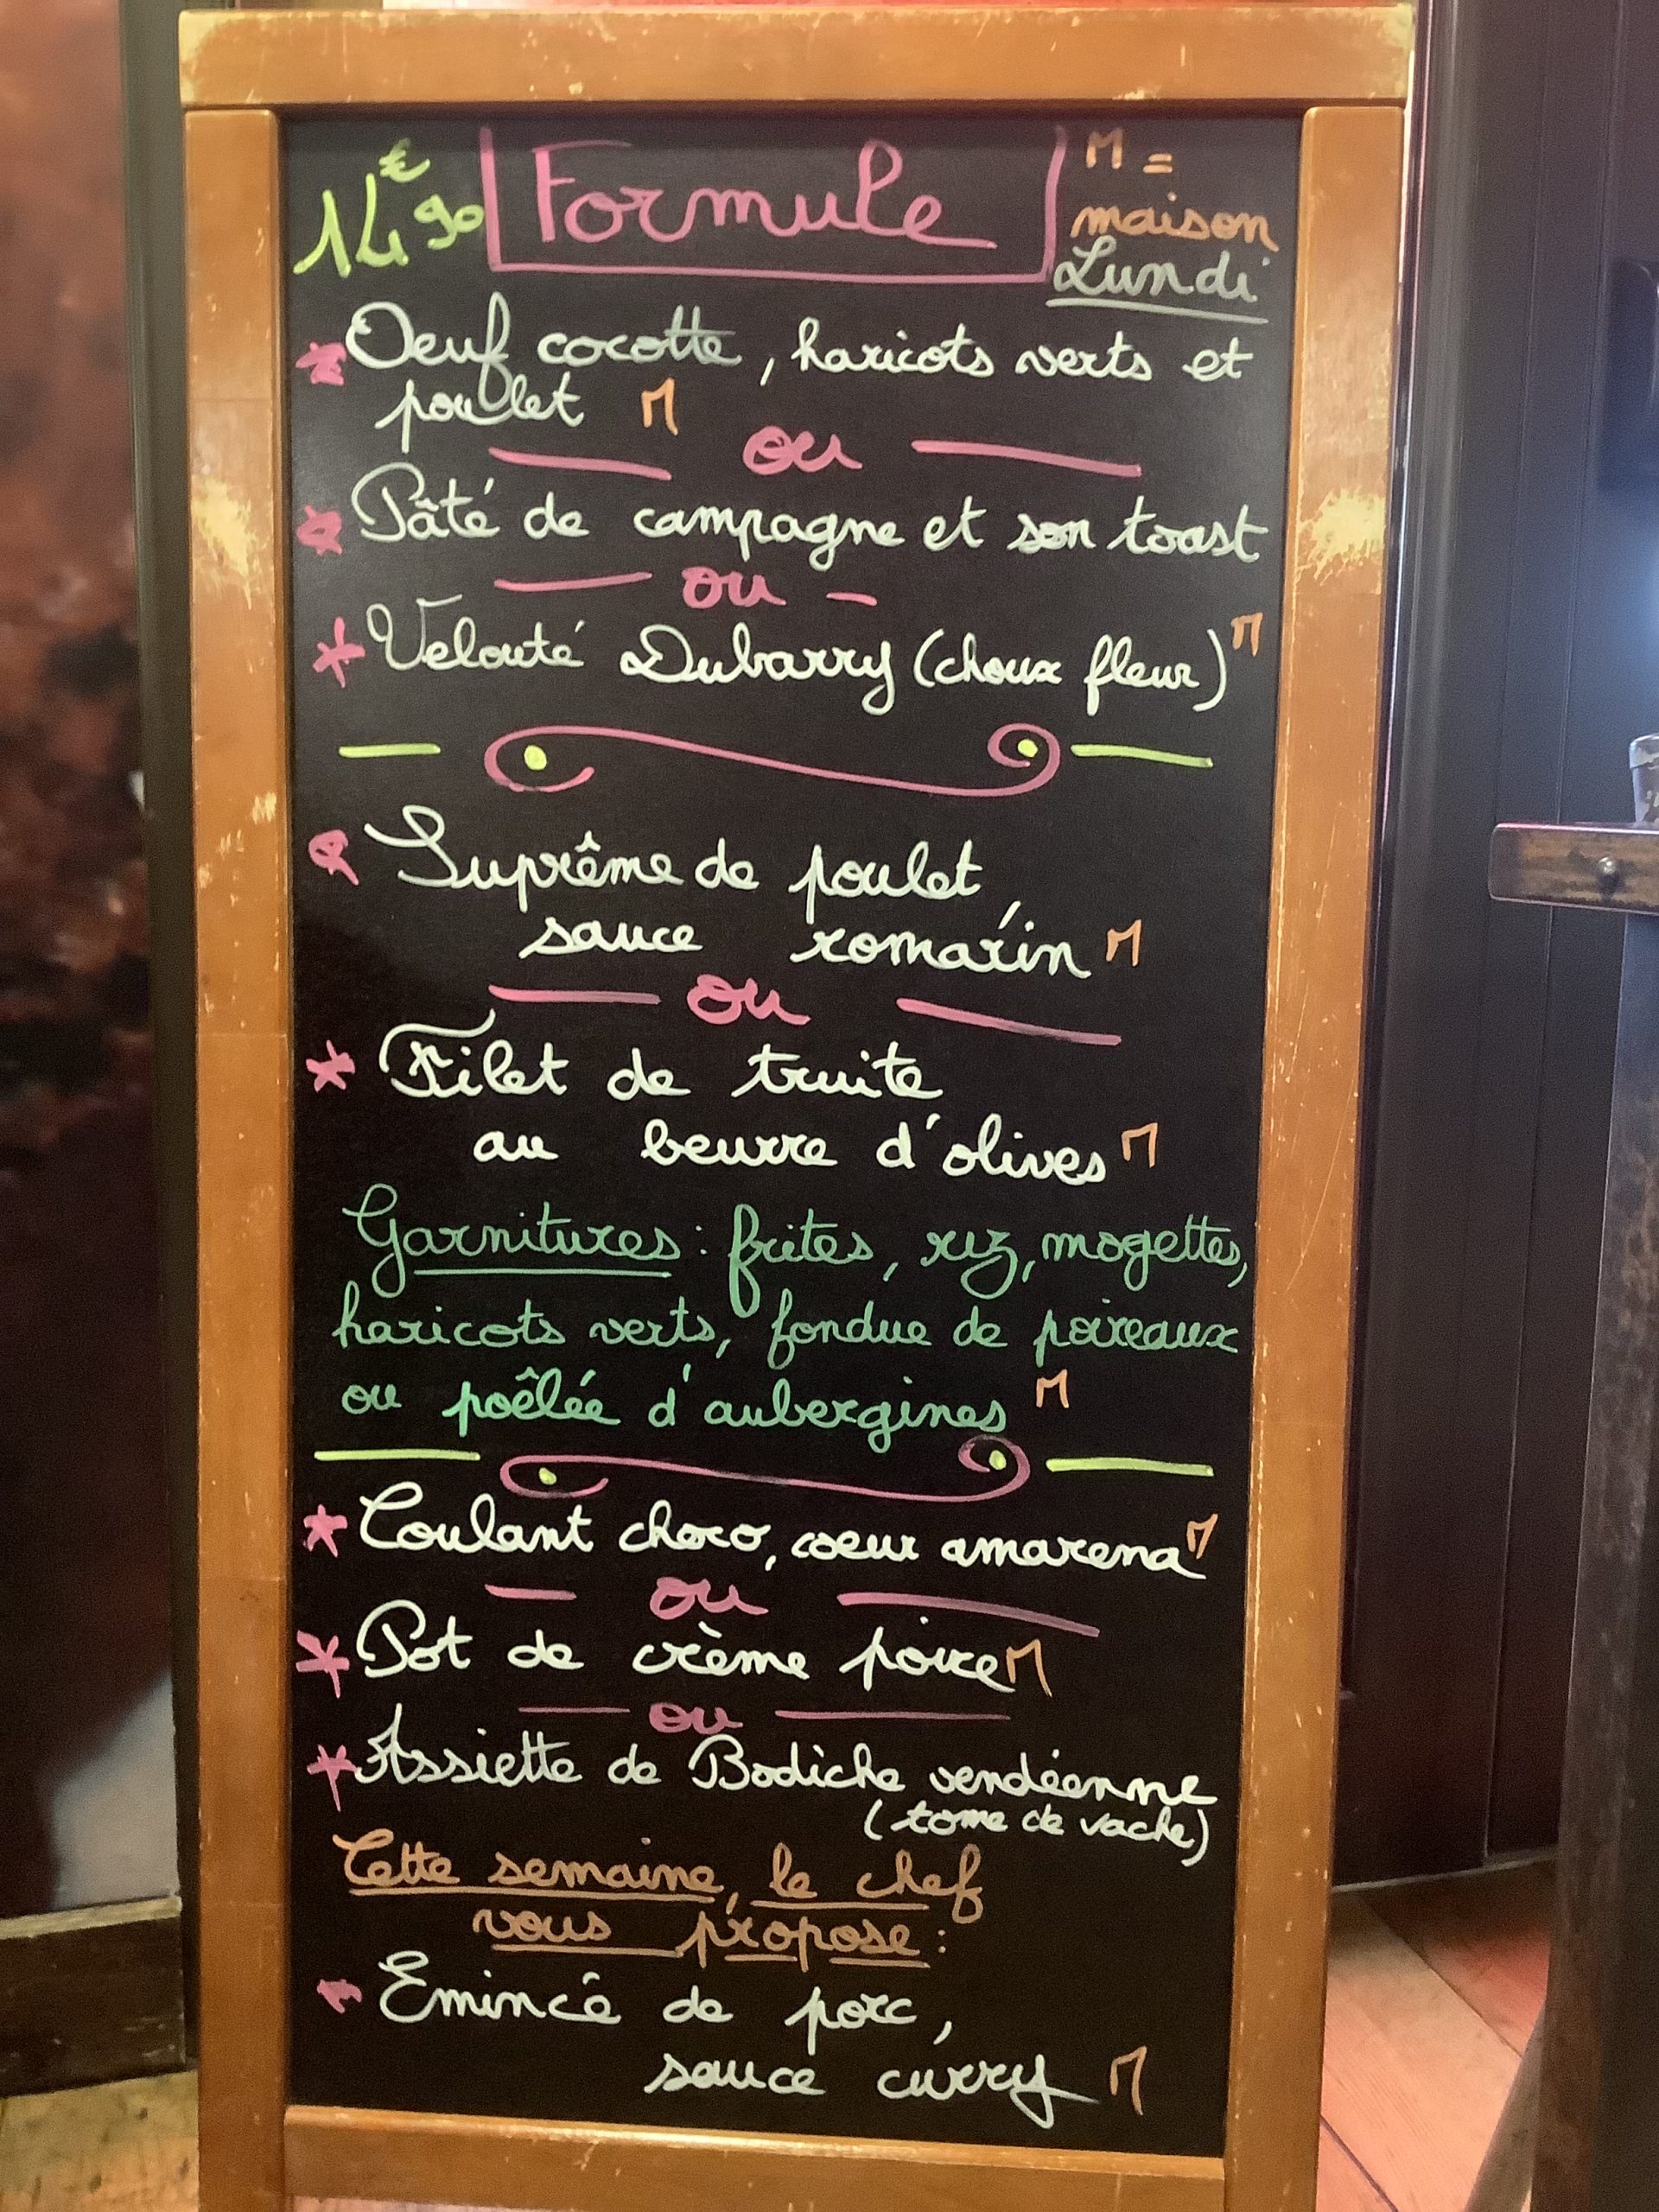 14,€90 Formule M =
maison
Lundi
* Oeuf cocotte, haricots verts et
poullet M
— ou —
* Pâté de campagne et son toast
— ou —
* Velouté Dubarry (choux fleur) M
* Suprême de poulet,
sauce romarin M
— ou —
* Filet de truite
au beurre d'olives M
Garnitures : frites, riz, mogettes,
haricots verts, fondue de poireaux
ou poêlée d'aubergines M
* Coulant choco, coeur amarena M
— ou —
* Pot de crème poire M
— ou —
* Assiette de Bodiche vendéenne
(tome de vache)
Cette semaine, le chef
vous propose :
* Emincé de porc,
sauce curry M